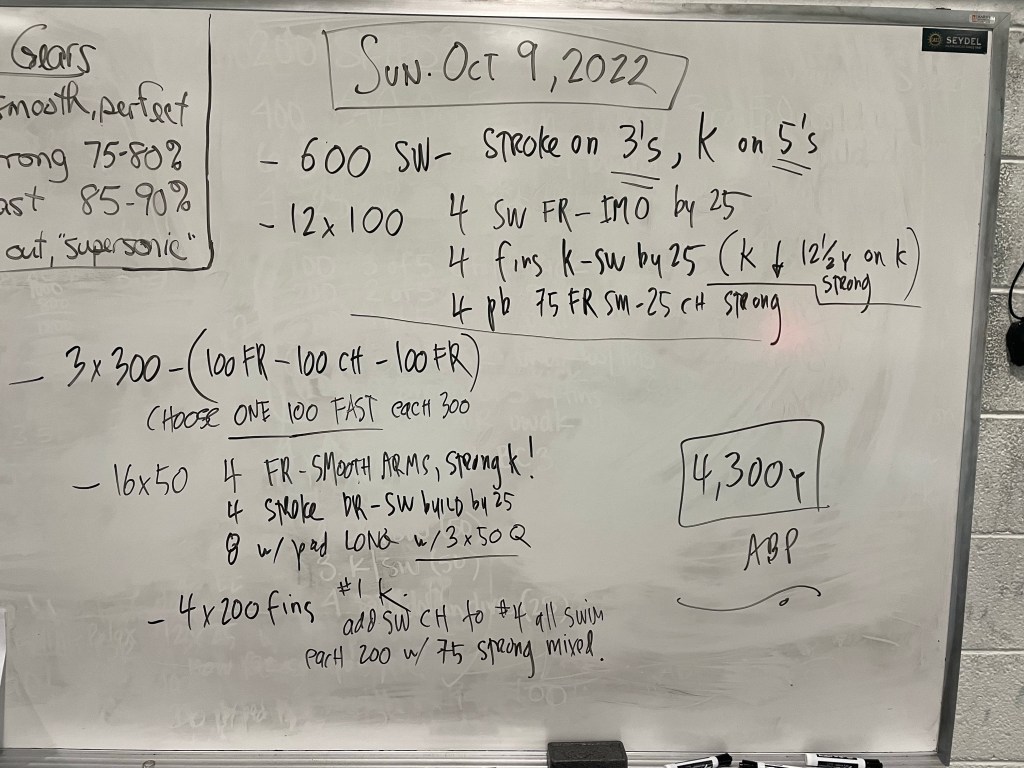 Gears
smooth, perfect
rong 75-80%
ast 85-90%
out, "supersonic"
SEYDEL
SUN. OCT 9, 2022
- 600 SW- STROKE on 3's, K on 5's
- 12x100 4 SW FR-IMO by 25
4 fins K-SW by 25 (K ↓ 12½Y on K)
strong
4 pb 75 FR SM-25 CH strong
- 3x300-(100 FR-100 CH-100 FR)
CHOOSE ONE 100 FAST each 300
- 16x50 4 FR-SMOOTH ARMS, strong K!
4 stroke DR-SW build by 25
8 w/ pad LONG w/3x50 Q
- 4x200 fins #1 K.
add SW CH to #4 all swim
each 200 w/ 75 strong mixed.
4,300Y
ABP